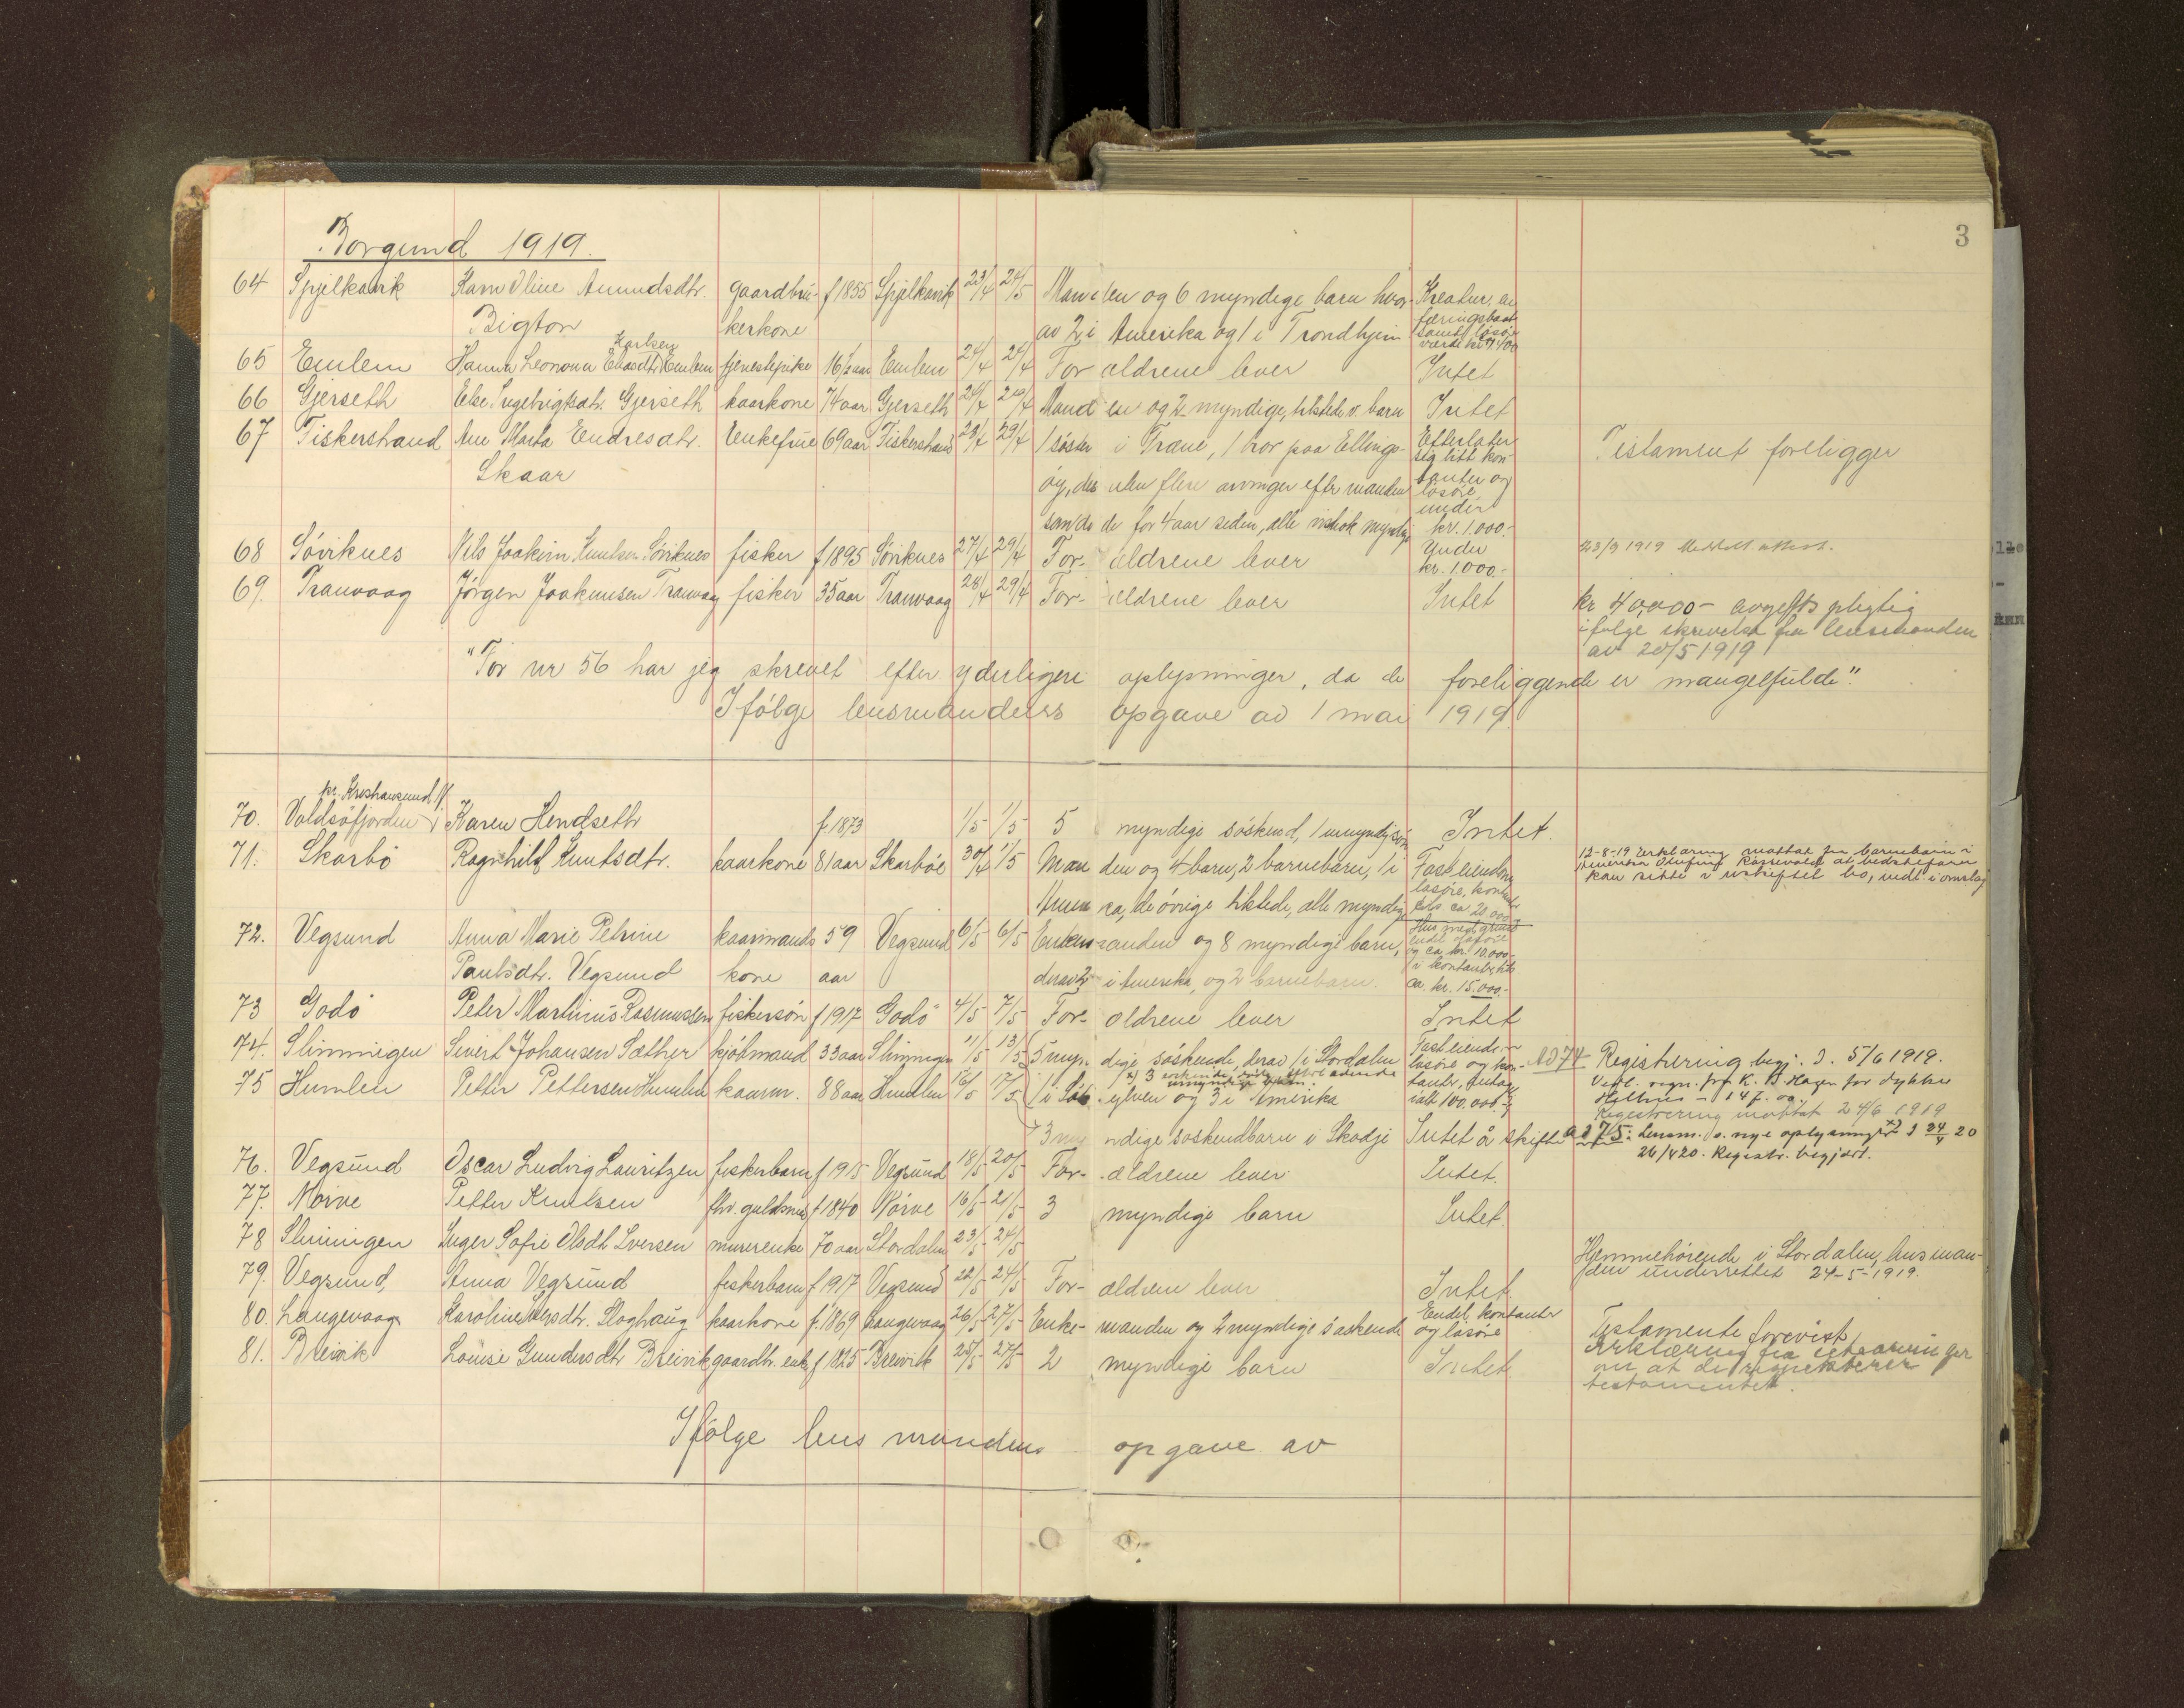 3
Borgund 1919.
64 Spjelkavik Karn Oline Amundsdtr. gaardbru- f 1855 Spjelkavik 23/4 24/5 Manden og 6 myndige barn hvor- Kreatur, en
Bigton kerkone av 2 i Amerika og 1 i Trondhjem færingsbaat samt løsøre
værdi kr 1.400
Karlsen
65 Emlem Hanna Leonora Emlem tjenestepike 16½ aar Emlem 24/4 24/4 Forældrene lever Intet
66 Gjerseth Else Ingebrigtsdtr. Gjerseth kaarkone 74 aar Gjerseth 24/4 Mand en og 2 myndige, tilstedev. barn Intet
67 Fiskerstrand Ane Marta Endresdtr. Enkefrue 69 aar Fiskerstrand 29/4 29/4 1 søster i Træne, 1 bror paa Ellings- Efterlater Testament foreligger
Skaar øy, des uten flere arvinger efter manden sig litt kon-
tanter og løsøre
som døde for 4 aar siden, alle myndige under kr. 1.000.-
68 Søviknes Nils Joakim Knutsen Søviknes fisker f 1895 Søviknes 27/4 29/4 For- ældrene lever Under 23/9 1919
kr. 1.000.-
69. Tranvaag Jørgen Joakimsen Tranvaag fisker 35 aar Tranvaag 28/4 29/4 For- ældrene lever Intet kr 40,000- avgiftspligtig
ifølge skrivelse fra lensmanden
av 20/5 1919
"For nr 56 har jeg skrevet efter yderligere oplysninger, da de foreliggende er mangelfulde."
Ifølge lensmandens opgave av 1 mai 1919
pr. Kristiansund N.
70. Valdsøfjorden Karen Hendseth f. 1873 1/5 1/5 5 myndige søskend, 1 umyndig søn Intet.
71. Skarbø Ragnhild Knutsdtr. kaarkone 81 aar Skarbøe 30/4 1/5 Man den og 4 barn, 2 barnebarn, 1 i Fast eiendom 12-8-19 Erklæring mottat fra barnebarn i
løsøre, kontanter Amerika at bedstefaren
Amerika, de øvrige tilstede, alle myndige ca 20.000.- kan sitte i uskiftet bo, vedl. i omslag
72. Vegsund Anna Marie Petrine kaarmands 59 Vegsund 6/5 6/5 Enkemanden og 8 myndige barn, Hus med grund
endel løsøre og ca. kr. 10.000-
Paulsdtr. Vegsund kone aar derav 2 i Amerika, og 2 barnebarn. i kontanter,
ca. kr. 15.000.-
73 Godø Peter Martinus Rasmussen fiskersøn f 1917 Godø 4/5 7/5 For- ældrene lever Intet
74. Slinningen Sivert Johansen Sæther kjøbmand 33 aar Slinningen 11/5 13/5 5 myn- dige søskende, derav 1 i Stordalen Fast eiendom Ad 74 Registrering begj. d. 5/6 1919.
løsøre og kon- Vedl. regn. fra K. B. Hagen for dykker
75 Humlen Petter Pettersen Humlen kaarm. 88 aar Humlen 16/5 17/5 1 i Søkkylven og 3 i Amerika tanter, antag
ialt 100.000.- Registrering mottat 24/6 1919
3 myndige søskendbarn i Skodje Intet å skifte ad 75: Lensm. s. nye oplysninger 24/4 20
26/4 20. Registr. begjært.
76. Vegsund Oscar Ludvig Lauritzen fiskerbarn f 1915 Vegsund 18/5 20/5 For- ældrene lever Intet.
77. Nørve Petter Knutsen fhv. guldsmed f 1840 Nørve 16/5 21/5 3 myndige barn Intet.
78 Slinningen Inger Sofie Olsdt. Iversen murerenke 70 aar Stordalen 23/5 24/5 Hjemmehørende i Stordalen, lensman-
den underrettet 24-5-1919.
79. Vegsund, Anna Vegsund fiskerbarn f 1917 Vegsund 22/5 24/5 For- ældrene lever Intet.
80. Langevaag Karoline Iversdtr. Sloghaug kaarkone f. 1869 Langevaag 26/5 27/5 Enke- manden og 2 myndige søskende Endel kontanter
og løsøre Testamente forevist
Erklæring fra utearvinger
81. Breivik Louise Gundersdtr Breivik gaardbr. enke f 1825 Breivik 25/5 27/5 2 myndige barn Intet om at de respekterer
testamentet.
Ifølge lensmandens opgave av